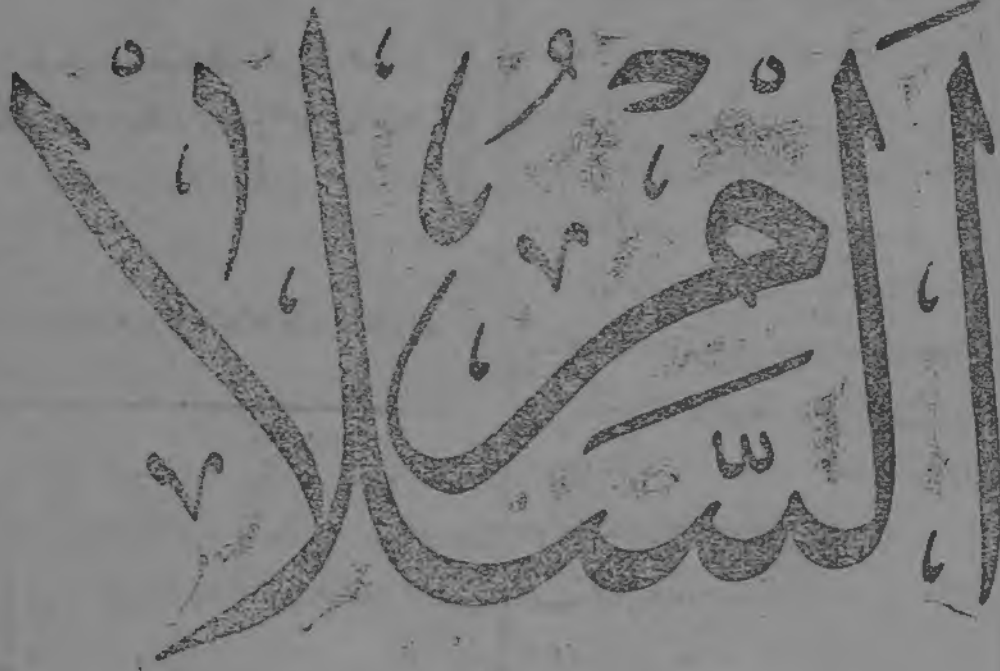 اَلسَّلامُ